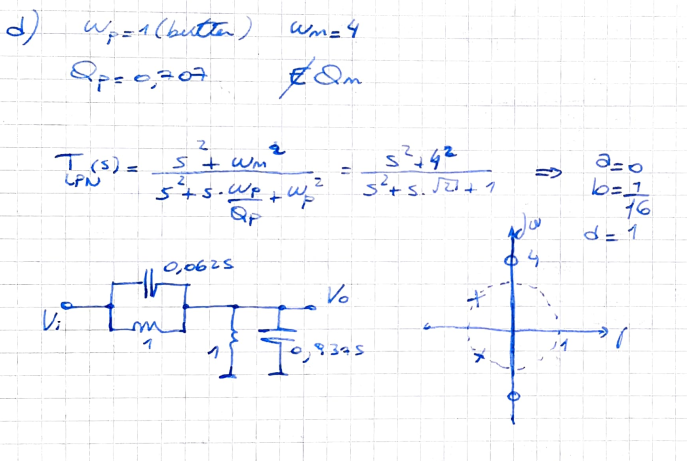 d) ωp=1 (butter) ωn=4
Qp=0,707 ∄ Qn
T LPN (s) = (s² + ωn²) / (s² + s·ωp/Qp + ωp²) = (s² + 4²) / (s² + s·√2 + 1) ⇒ a=0
b=1/16
d=1
jω
0,0625
4
Vi
Vo
1
1
0,9375
1